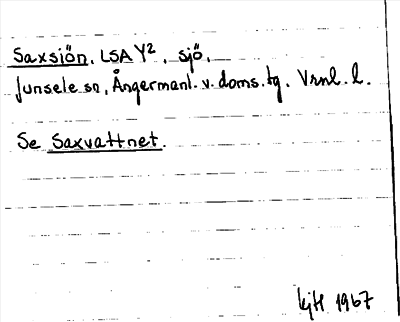 Saxsjön, LSA Y², sjö,
Junsele sn, Ångermanl. v. doms. tg. Vrnl. l.
Se Saxvattnet.
kjH 1967